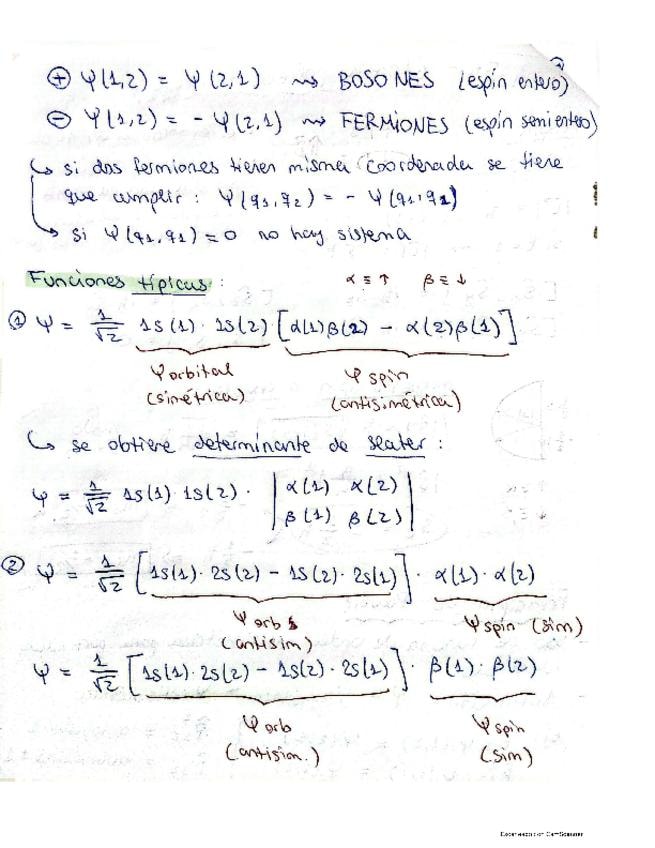 ⊕ Ψ(1,2) = Ψ(2,1) ⇝ BOSONES (espín entero)
⊖ Ψ(1,2) = - Ψ(2,1) ⇝ FERMIONES (espín semientero)
↳ si dos fermiones tienen misma coordenada se tiene
que cumplir: Ψ(q1,q2) = - Ψ(q1,q1)
↳ si Ψ(q1,q1) = 0 no hay sistema
Funciones típicas: α ≡ ↑ β ≡ ↓
① Ψ = 1/√2 1s(1) · 1s(2) [α(1)β(2) - α(2)β(1)]
Ψ orbital Ψ spin
(simétrica) (antisimétrica)
↳ se obtiene determinante de slater:
Ψ = 1/√2 1s(1) 1s(2) · | α(1) α(2) |
| β(1) β(2) |
② Ψ = 1/√2 [1s(1) · 2s(2) - 1s(2) · 2s(1)] · α(1) · α(2)
Ψ orb Ψ spin (sim)
(antisim)
Ψ = 1/√2 [1s(1) · 2s(2) - 1s(2) · 2s(1)] · β(1) · β(2)
Ψ orb Ψ spin
(antisim.) (sim)
Escaneado con CamScanner